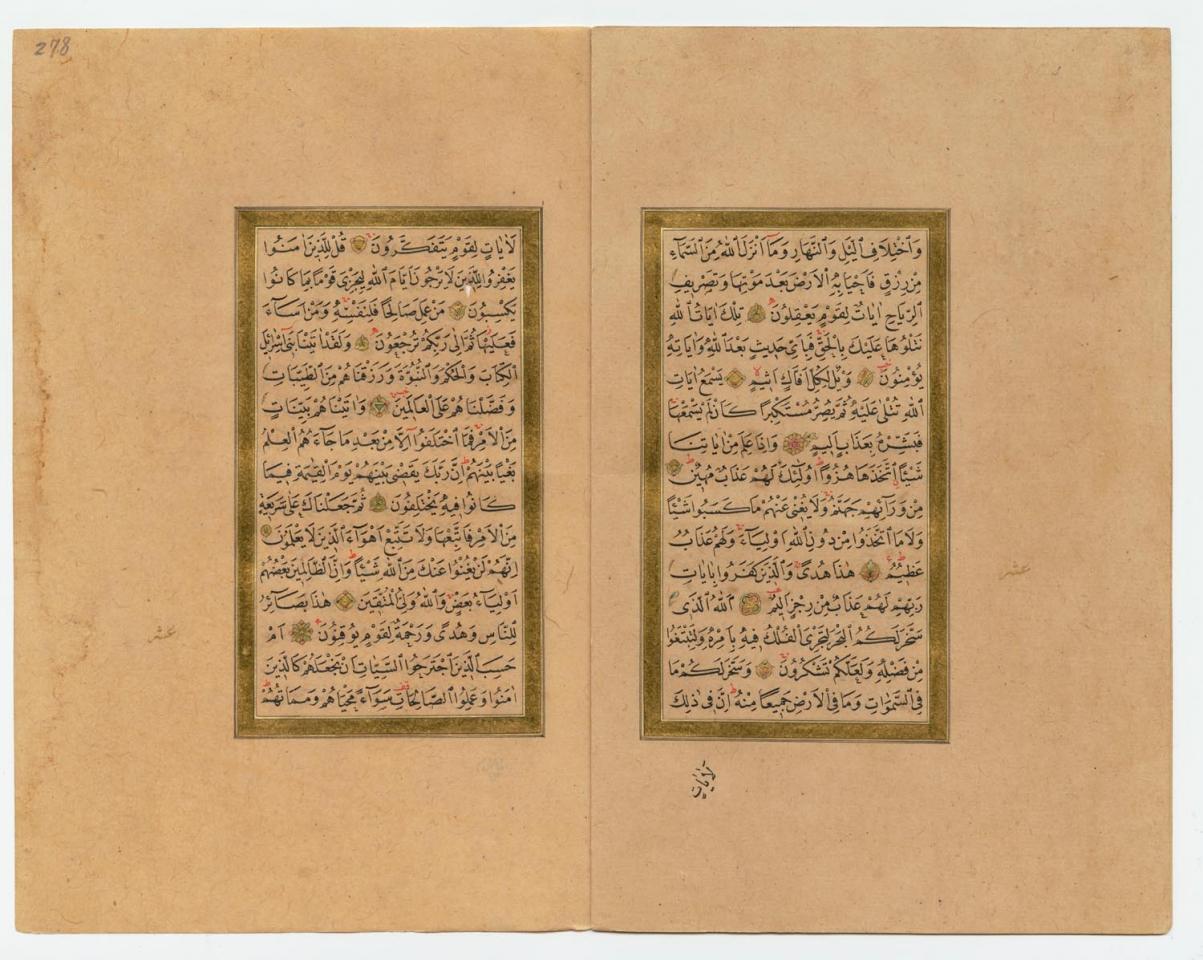 وَاخْتِلَافِ الَّيْلِ وَالنَّهَارِ وَمَا اَنْزَلَ اللّٰهُ مِنَ السَّمَاءِ
مِنْ رِزْقٍ فَاَحْيَا بِهِ الْاَرْضَ بَعْدَ مَوْتِهَا وَتَصْرِيفِ
الرِّيَاحِ اٰيَاتٌ لِقَوْمٍ يَعْقِلُونَ تِلْكَ اٰيَاتُ اللّٰهِ
نَتْلُوهَا عَلَيْكَ بِالْحَقِّ فَبِاَىِّ حَدِيثٍ بَعْدَ اللّٰهِ وَاٰيَاتِهِ
يُؤْمِنُونَ وَيْلٌ لِكُلِّ اَفَّاكٍ اَثِيمٍ يَسْمَعُ اٰيَاتِ
اللّٰهِ تُتْلٰى عَلَيْهِ ثُمَّ يُصِرُّ مُسْتَكْبِرًا كَاَنْ لَمْ يَسْمَعْهَا
فَبَشِّرْهُ بِعَذَابٍ اَلِيمٍ وَاِذَا عَلِمَ مِنْ اٰيَاتِنَا
شَيْئًا اتَّخَذَهَا هُزُوًا اُولٰئِكَ لَهُمْ عَذَابٌ مُهِينٌ
مِنْ وَرَائِهِمْ جَهَنَّمُ وَلَا يُغْنٖى عَنْهُمْ مَا كَسَبُوا شَيْئًا
وَلَا مَا اتَّخَذُوا مِنْ دُونِ اللّٰهِ اَوْلِيَاءَ وَلَهُمْ عَذَابٌ
عَظِيمٌ هٰذَا هُدًى وَالَّذِينَ كَفَرُوا بِاٰيَاتِ
رَبِّهِمْ لَهُمْ عَذَابٌ مِنْ رِجْزٍ اَلِيمٌ اَللّٰهُ الَّذٖى
سَخَّرَ لَكُمُ الْبَحْرَ لِتَجْرِىَ الْفُلْكُ فِيهِ بِاَمْرِهِ وَلِتَبْتَغُوا
مِنْ فَضْلِهِ وَلَعَلَّكُمْ تَشْكُرُونَ وَسَخَّرَ لَكُمْ مَا
فِى السَّمٰوَاتِ وَمَا فِى الْاَرْضِ جَمِيعًا مِنْهُ اِنَّ فٖى ذٰلِكَ
لَاٰيَاتٍ
عشر
278
لَاٰيَاتٍ لِقَوْمٍ يَتَفَكَّرُونَ قُلْ لِلَّذِينَ اٰمَنُوا
يَغْفِرُوا لِلَّذِينَ لَا يَرْجُونَ اَيَّامَ اللّٰهِ لِيَجْزِىَ قَوْمًا بِمَا كَانُوا
يَكْسِبُونَ مَنْ عَمِلَ صَالِحًا فَلِنَفْسِهِ وَمَنْ اَسَاءَ
فَعَلَيْهَا ثُمَّ اِلٰى رَبِّكُمْ تُرْجَعُونَ وَلَقَدْ اٰتَيْنَا بَنٖى اِسْرَائِلَ
الْكِتَابَ وَالْحُكْمَ وَالنُّبُوَّةَ وَرَزَقْنَاهُمْ مِنَ الطَّيِّبَاتِ
وَفَضَّلْنَاهُمْ عَلَى الْعَالَمِينَ وَاٰتَيْنَاهُمْ بَيِّنَاتٍ
مِنَ الْاَمْرِ فَمَا اخْتَلَفُوا اِلَّا مِنْ بَعْدِ مَا جَاءَهُمُ الْعِلْمُ
بَغْيًا بَيْنَهُمْ اِنَّ رَبَّكَ يَقْضٖى بَيْنَهُمْ يَوْمَ الْقِيٰمَةِ فِيمَا
كَانُوا فِيهِ يَخْتَلِفُونَ ثُمَّ جَعَلْنَاكَ عَلٰى شَرِيعَةٍ
مِنَ الْاَمْرِ فَاتَّبِعْهَا وَلَا تَتَّبِعْ اَهْوَاءَ الَّذِينَ لَا يَعْلَمُونَ
اِنَّهُمْ لَنْ يُغْنُوا عَنْكَ مِنَ اللّٰهِ شَيْئًا وَاِنَّ الظَّالِمِينَ بَعْضُهُمْ
اَوْلِيَاءُ بَعْضٍ وَاللّٰهُ وَلِىُّ الْمُتَّقِينَ هٰذَا بَصَائِرُ
لِلنَّاسِ وَهُدًى وَرَحْمَةٌ لِقَوْمٍ يُوقِنُونَ اَمْ
حَسِبَ الَّذِينَ اجْتَرَحُوا السَّيِّاٰتِ اَنْ نَجْعَلَهُمْ كَالَّذِينَ
اٰمَنُوا وَعَمِلُوا الصَّالِحَاتِ سَوَاءً مَحْيَاهُمْ وَمَمَاتُهُمْ
عشر